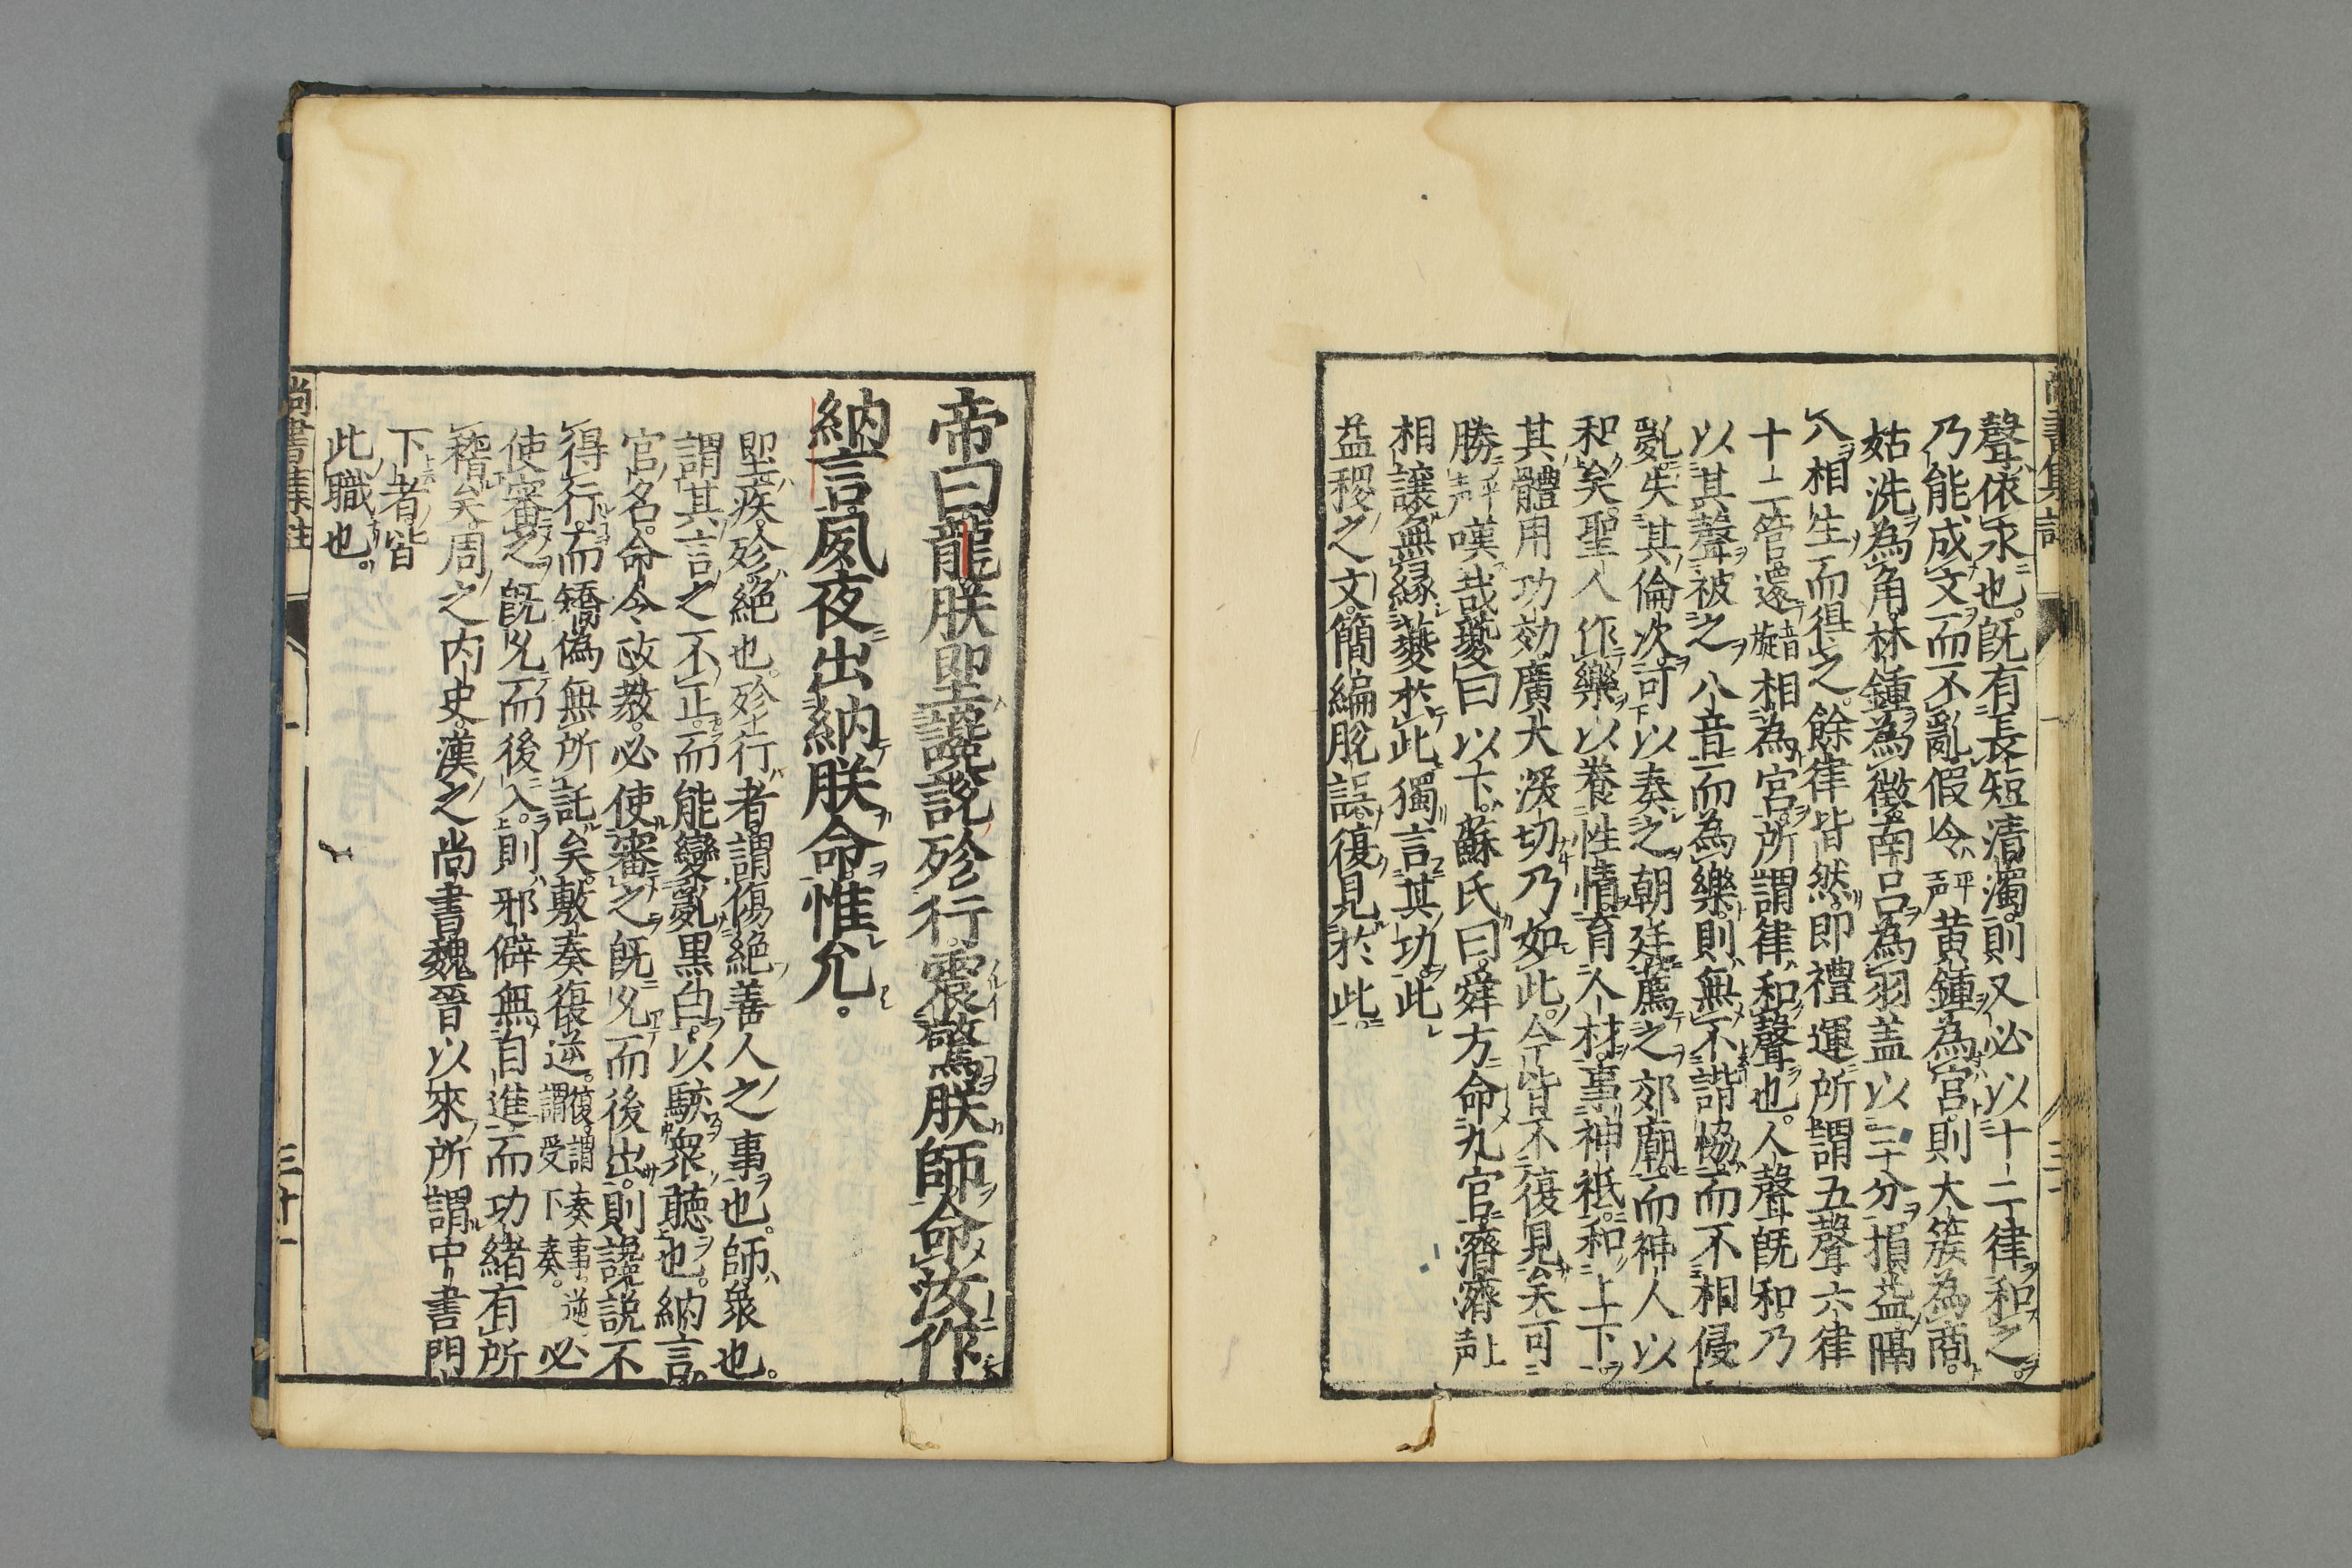 聲依永也。既有長短清濁。則又必以十二律和之。
乃能成文而不亂。假令平声黄鍾為宮。則大簇為商。
姑洗為角。林鍾為徵。南呂為羽。盖以三分損益隔
八相生而得之。餘律皆然。即禮運所謂五聲六律
十二管還音旋相為宮。所謂律和聲也。人聲既和。乃
以其聲被之八音而為樂。則無不諧恊。而不相侵
亂。失其倫次。可以奏之朝廷。薦之郊廟。而神人以
和矣。聖人作樂以養性情。育人材。事神祇。和上下。
其體用功効。廣大深切乃如此。今皆不復見矣。可
勝平声嘆哉。夔曰以下。蘇氏曰。舜方命九官。濟濟上声
相讓。無緣夔於此獨言其功。此
益稷之文。簡編脫誤。復見於此。
帝曰。龍。朕堲讒說殄行。震驚朕師。命汝作
納言。夙夜出納朕命。惟允。
堲疾。殄絶也。殄行者。謂傷絶善人之事也。師。衆也。
謂其言之不正。而能變亂黒白。以駭衆聽也。納言。
官名。命令政教。必使審之。既允而後出。則讒説不
得行。而矯偽無所託矣。敷奏復逆。復。謂奏事。逆。謂受下奏。必
使審之。既允而後入。則邪僻無自進。而功緒有所
稽矣。周之内史。漢之尚書。魏晉以來所謂中書門
下者。皆
此職也。
尚書集註
三十一